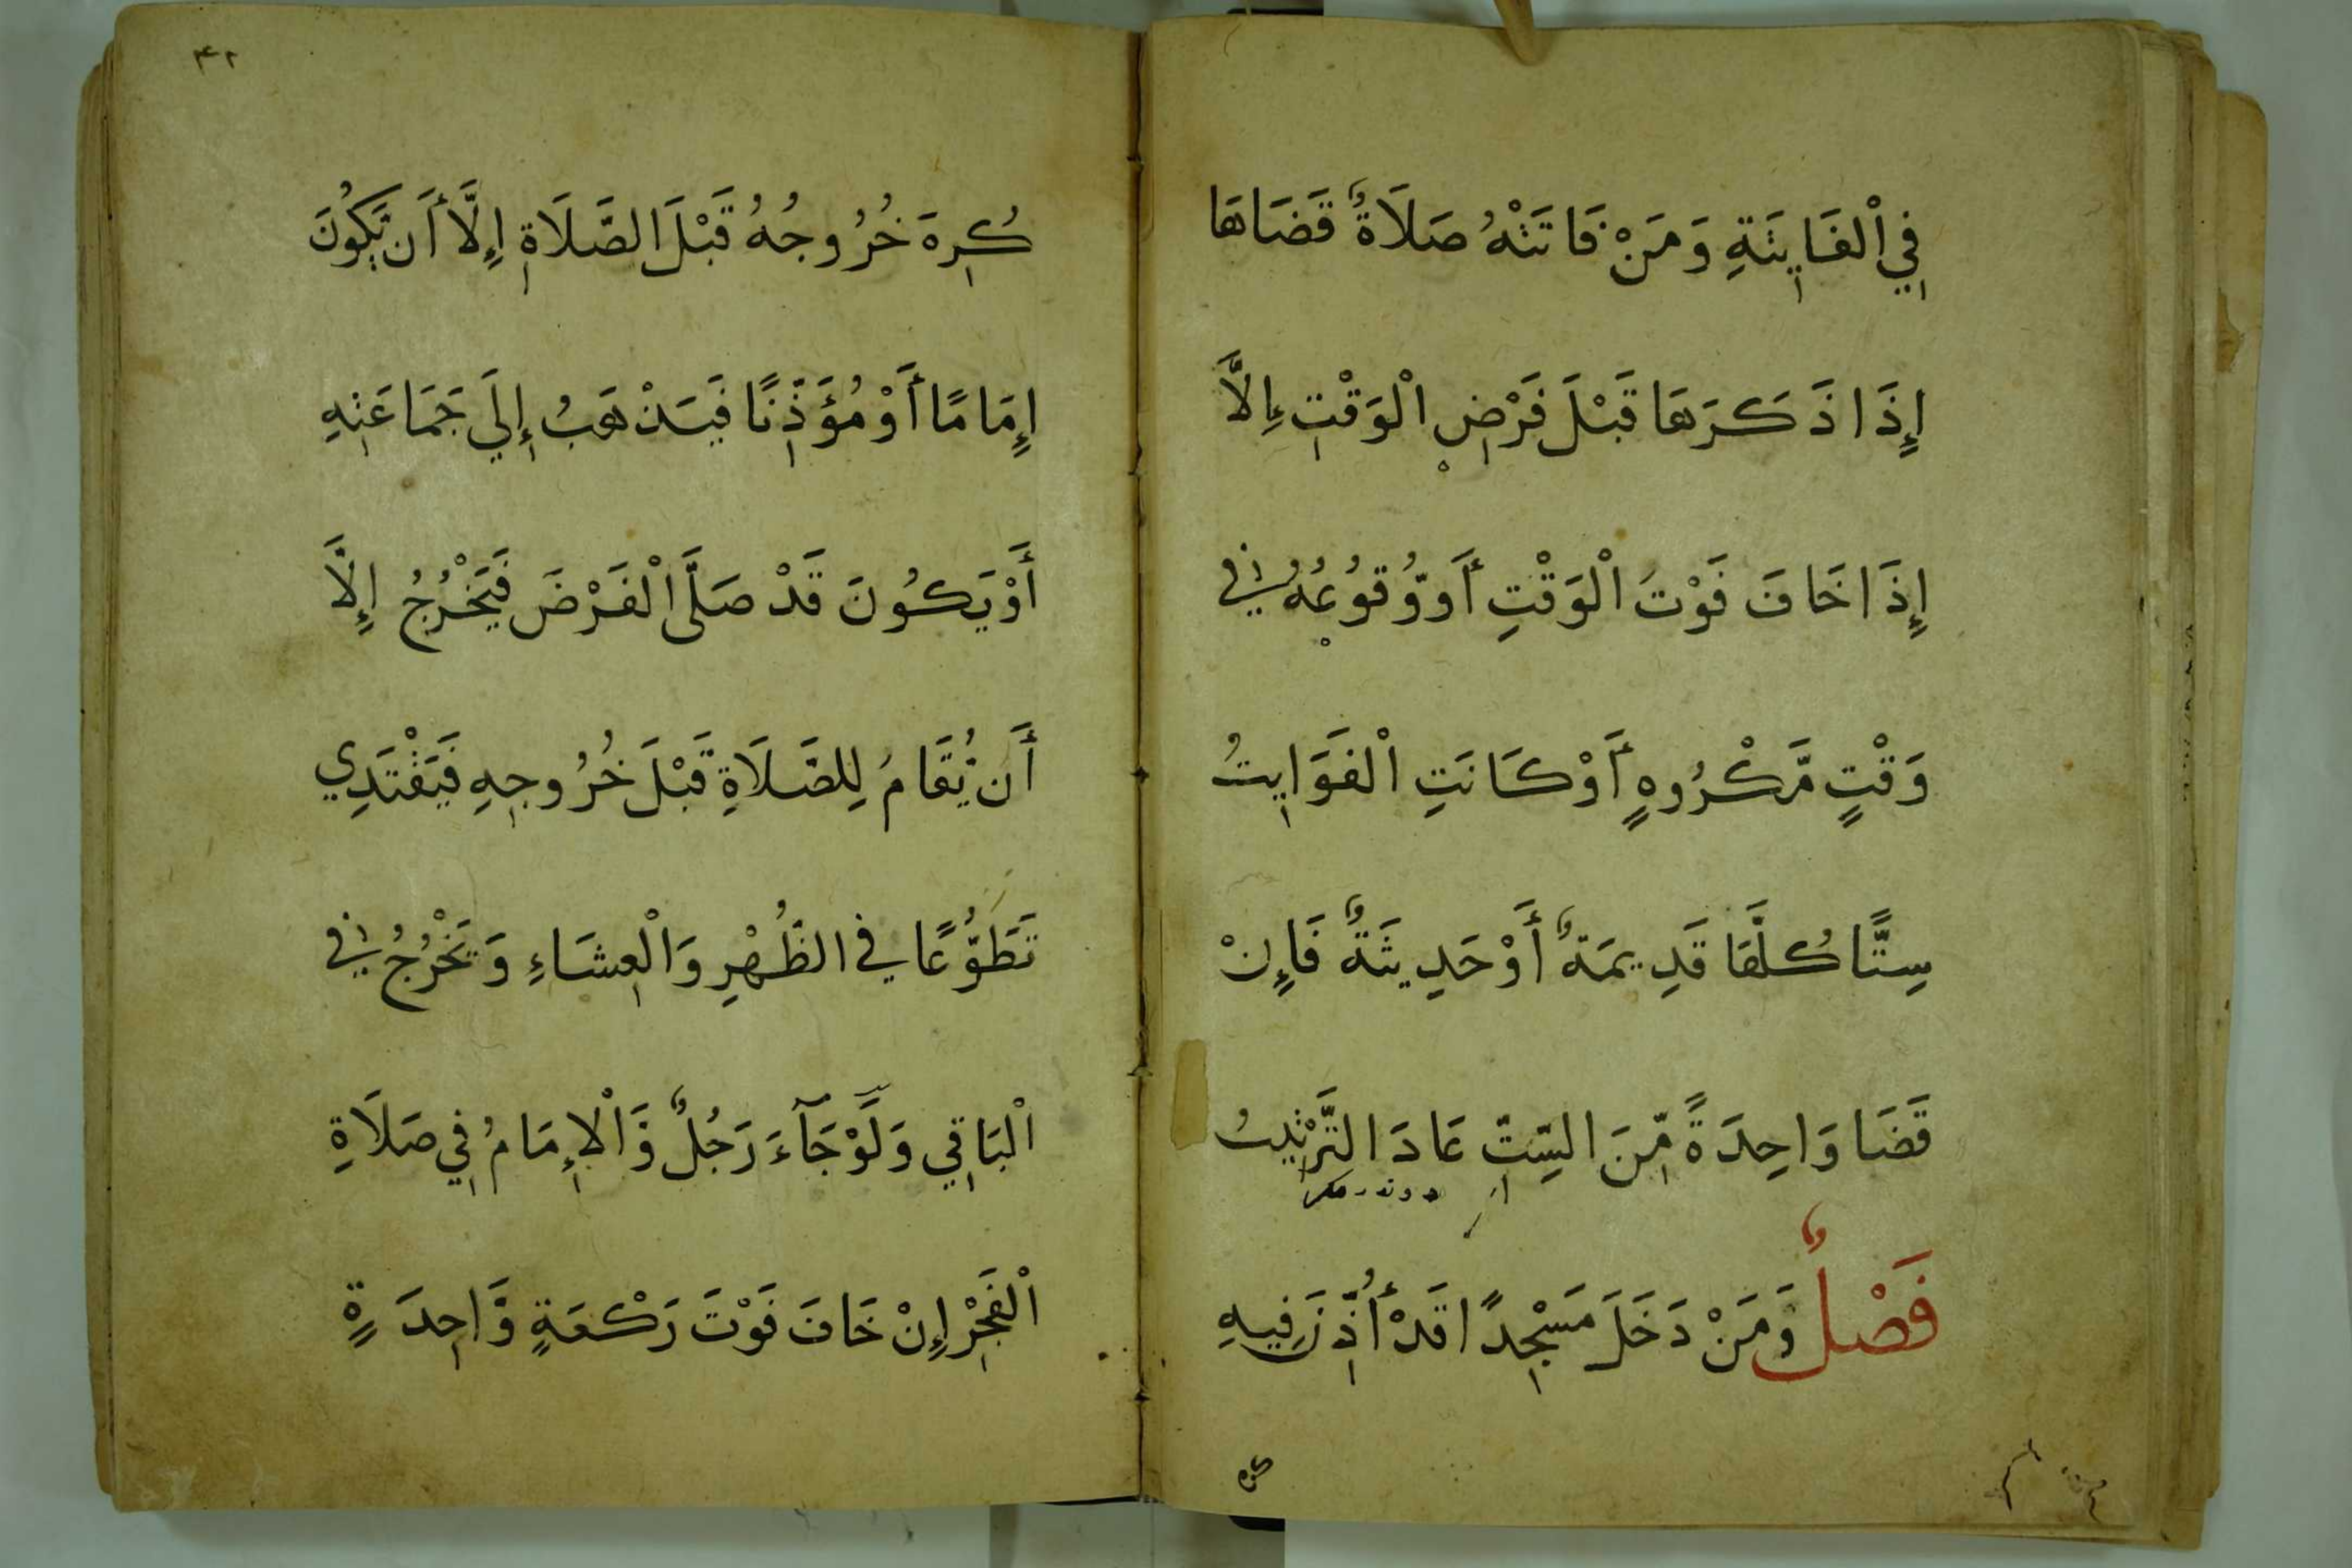 فِي الْفَايِتَةِ وَمَنْ فَاتَتْهُ صَلَاةٌ قَضَاهَا
إِذَا ذَكَرَهَا قَبْلَ فَرْضِ الْوَقْتِ إِلَّا
إِذَا خَافَ فَوْتَ الْوَقْتِ أَو وُّقُوعُهُ فِي
وَقْتٍ مَّكْرُوهٍ أَوْ كَانَتِ الْفَوَايِتُ
سِتًّا كُلَّهَا قَدِيمَةٌ أَوْ حَدِيثَةٌ فَإِنْ
قَضَا وَاحِدَةً مِّنَ السِّتِّ عَادَ التَّرْتِيبُ
فَصْلٌ وَّمَنْ دَخَلَ مَسْجِدًا قَدْ أُذِّنَ فِيهِ
كره
۴۲
كُرِهَ خُرُوجُهُ قَبْلَ الصَّلَاةِ إِلَّا أَن يَّكُونَ
إِمَامًا أَوْ مُؤَذِّنًا فَيَذْهَبُ إِلَي جَمَاعَتِهِ
أَوْ يَكُونَ قَدْ صَلَّى الْفَرْضَ فَيَخْرُجُ إِلَّا
أَن يُّقَامُ لِلصَّلَاةِ قَبْلَ خُرُوجِهِ فَيَقْتَدِي
تَطَوُّعًا فِي الظُّهْرِ وَالْعِشَاءِ وَيَخْرُجُ فِي
الْبَاقِي وَلَوْ جَآءَ رَجُلٌ وَّالْإِمَامُ فِي صَلَاةِ
الْفَجْرِ إِنْ خَافَ فَوْتَ رَكْعَةٍ وَّاحِدَةٍ